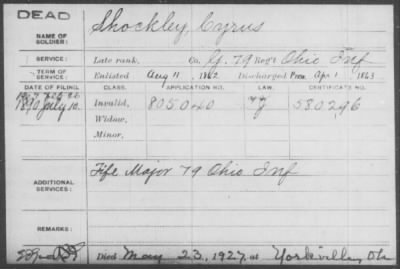 DEAD
NAME OF SOLDIER: Shockley, Cyrus
SERVICE: Late rank, Co. G, 79 Reg't Ohio Inf
TERM OF SERVICE: Enlisted Aug 11, 1862 Discharged Apr 1, 1863
DATE OF FILING. CLASS. APPLICATION NO. LAW. CERTIFICATE NO.
1890 July 10. Invalid, 805040 G 580296
Widow,
Minor,
ADDITIONAL SERVICES: Fife Major 79 Ohio Inf
REMARKS:
Died May 23, 1927, at Yorkville, Oh